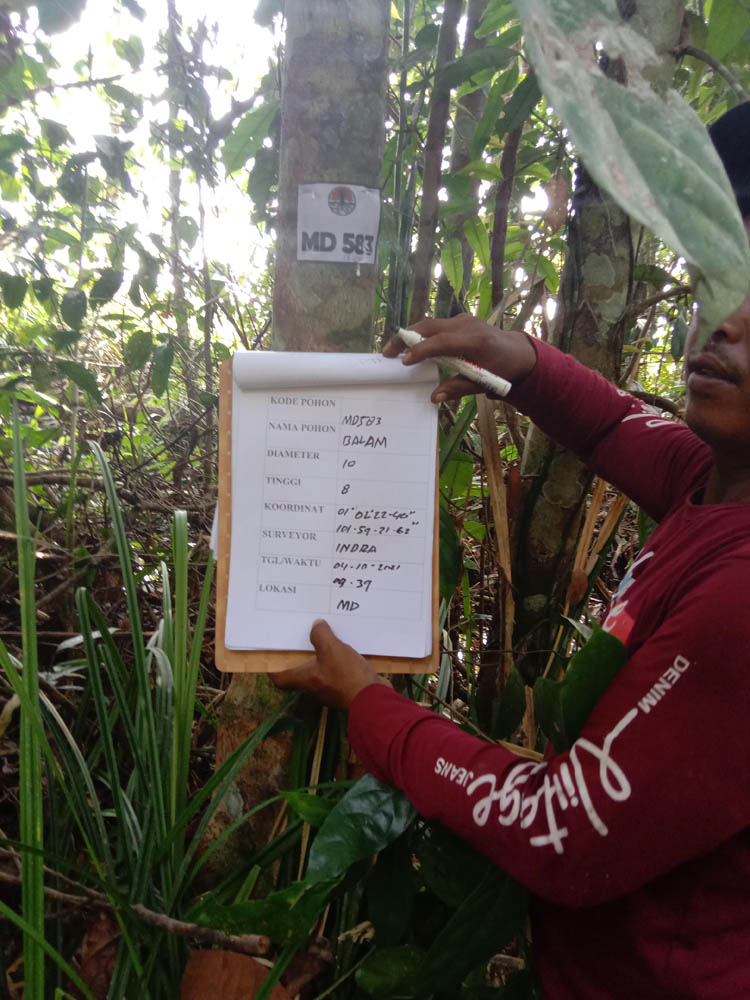 MD 583
KODE POHON MD583
NAMA POHON BALAM
DIAMETER 10
TINGGI 8
KOORDINAT 01° 02' 22-40"
101-59-21-62"
SURVEYOR INDRA
TGL/WAKTU 04-10-2021
09.37
LOKASI MD
DENIM
JEANS